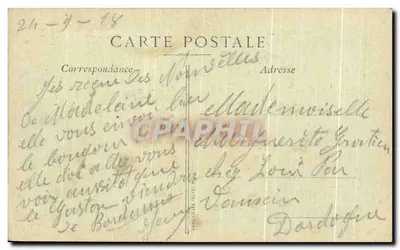 24-9-18
CARTE POSTALE
Correspondance
Adresse
Jes reçue des Nouvelles
De Madeleine hier
elle vous envoi
le bonjour
elle dit a de vous
voir aussitot que
le Gaston viendra
de Bordeaux
Mademoiselle
Marguerite
chez Loui
Dordogne